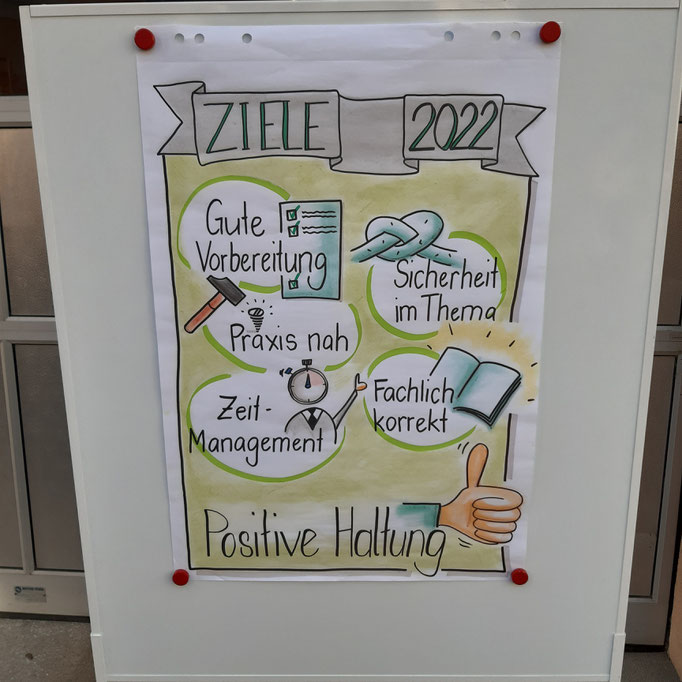 ZIELE 2022
Gute
Vorbereitung
Sicherheit
im Thema
Praxis nah
Zeit-
Management
Fachlich
korrekt
Positive Haltung